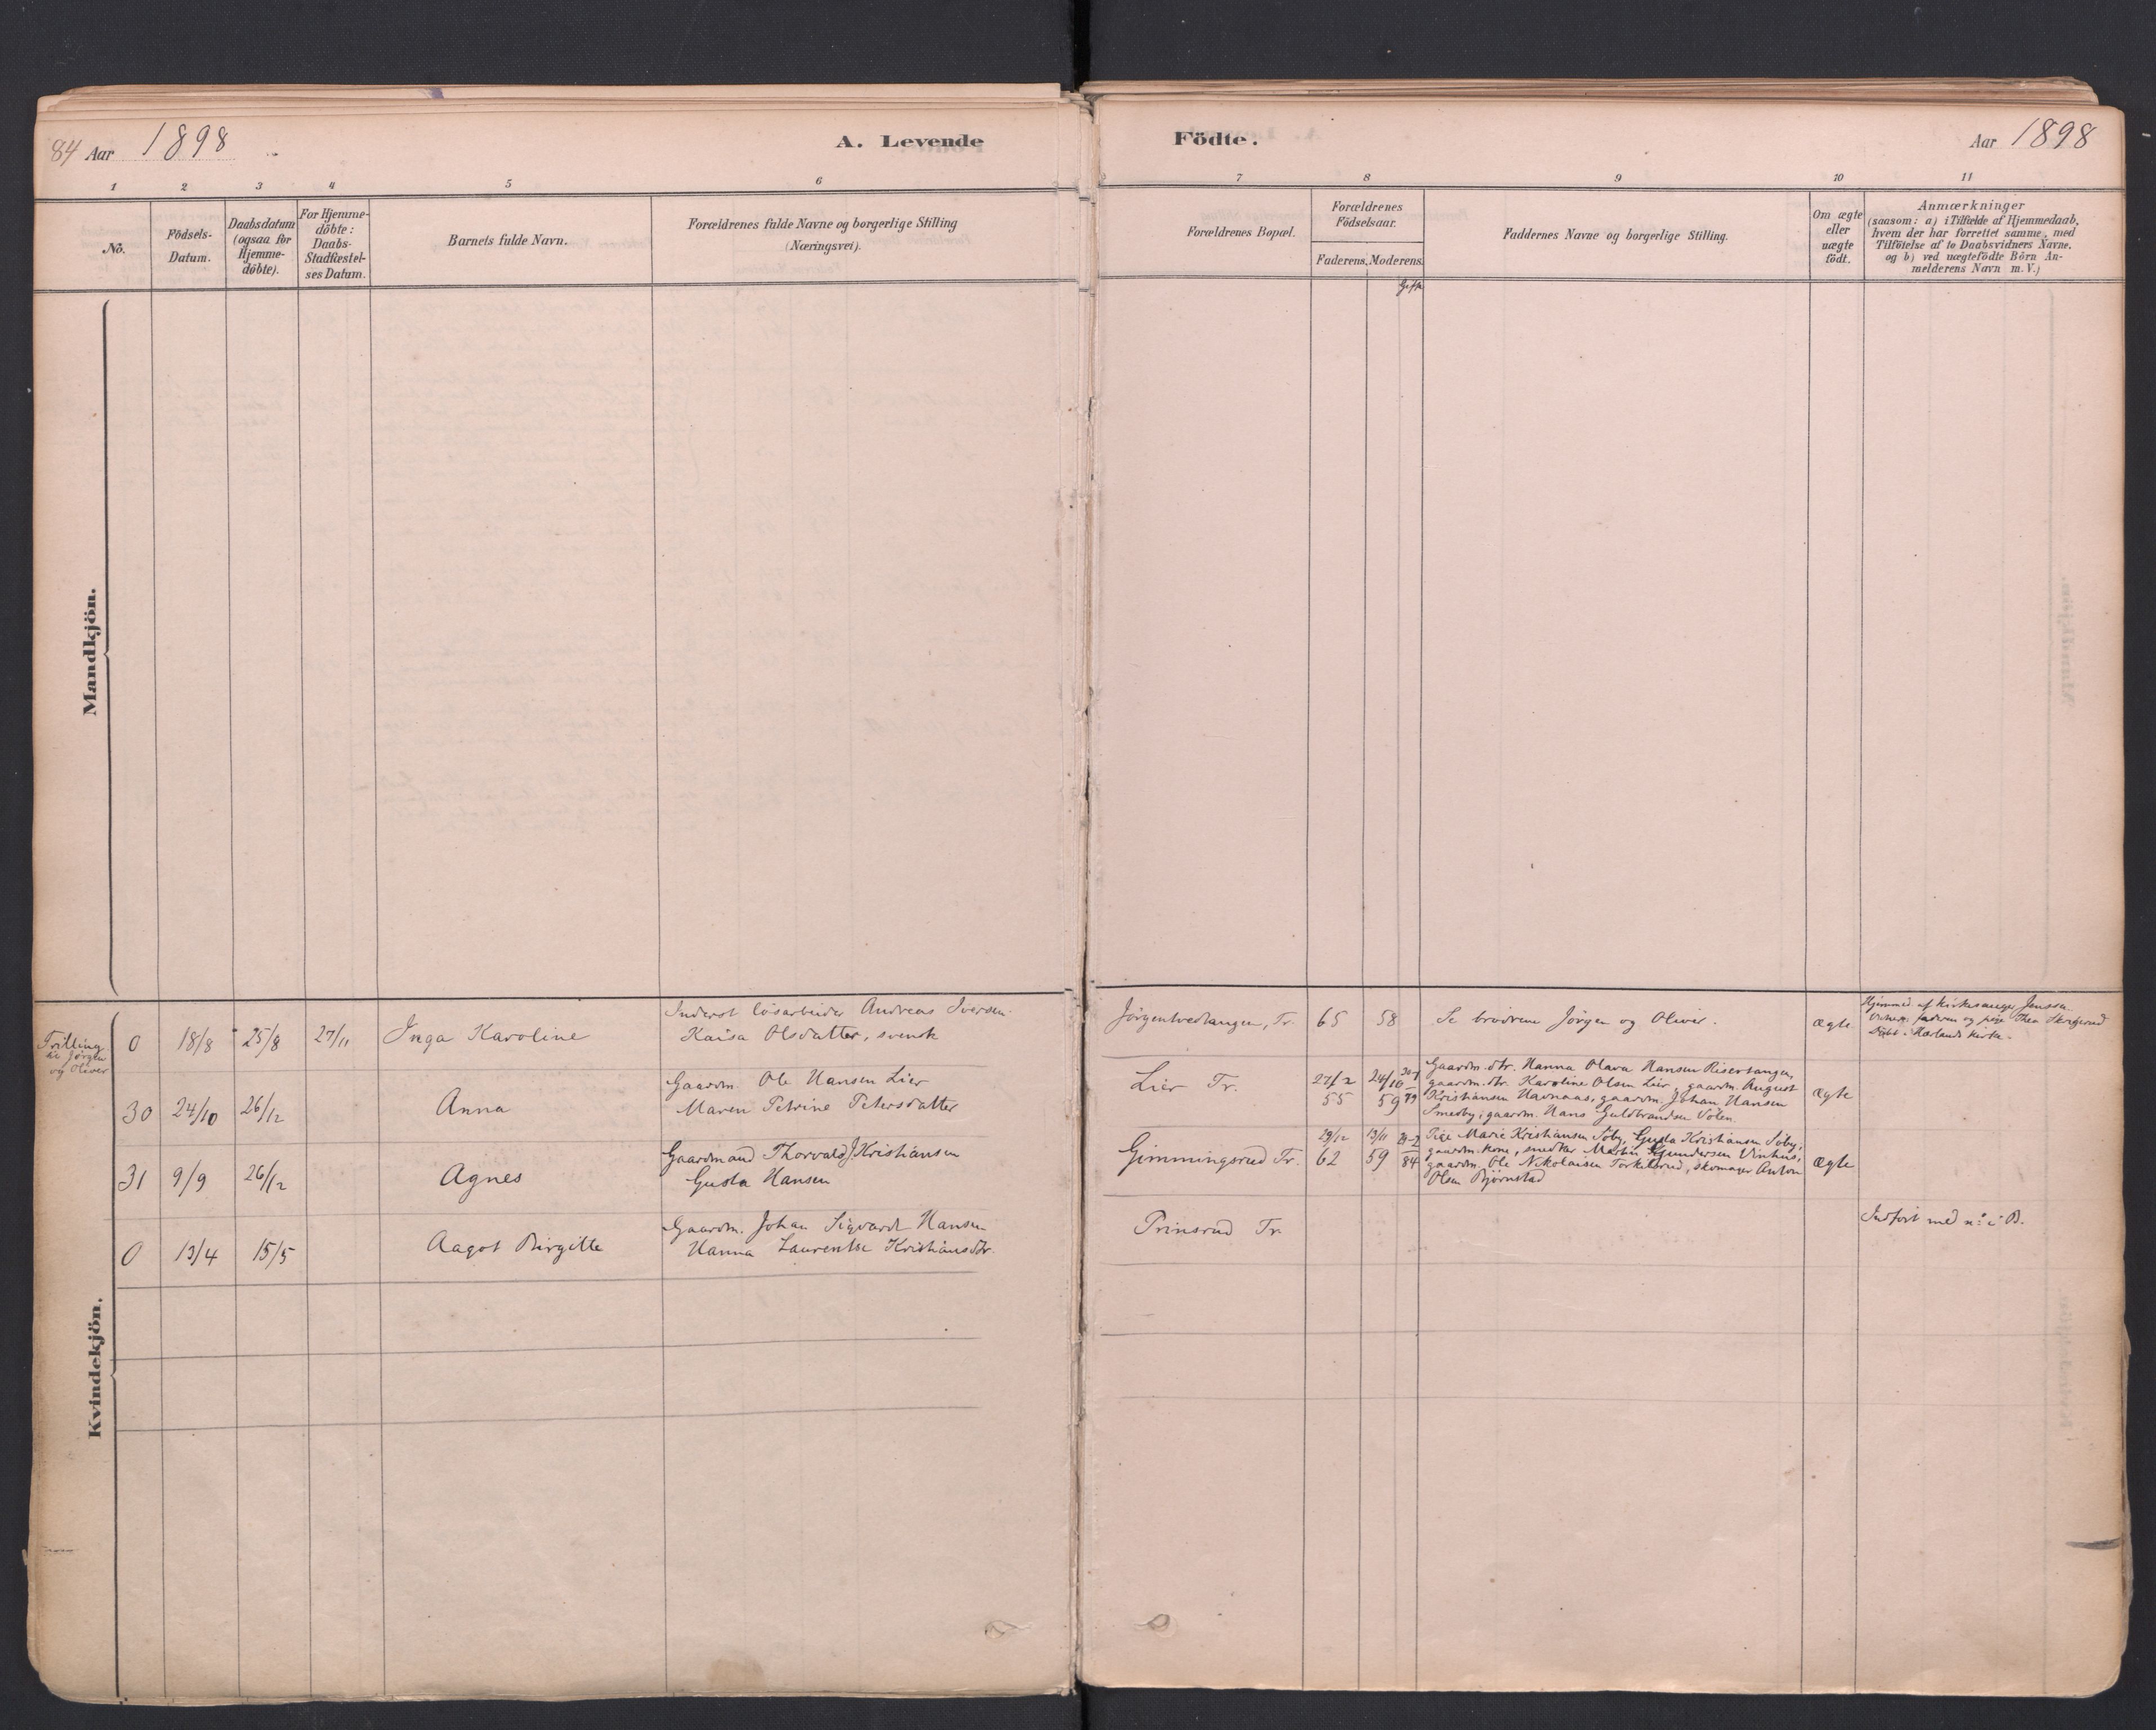 84 Aar 1898
A. Levende
Födte.
Aar 1898
1 2 3 4 5 6
7 8 9 10 11
Nö.
Födsels-
Datum.
Daabsdatum
(ogsaa for
Hjemme-
döbte).
For Hjemme-
döbte:
Daabs-
Stadfæstel-
ses Datum.
Barnets fulde Navn.
Forældrenes fulde Navne og borgerlige Stilling
(Næringsvei).
Forældrenes Bopæl.
Forældrenes
Födselsaar.
Faderens. Moderens.
Gift
Faddernes Navne og borgerlige Stilling.
Om ægte
eller
uægte
födt.
Anmærkninger
(saasom: a) i Tilfælde af Hjemmedaab,
hvem der har forrettet samme, med
Tilföielse af to Daabsvidners Navne.
og b) ved uægtefödte Börn An-
melderens Navn m.V.)
Mandkjön.
Kvindekjön.
Trilling
til Jørgen
og Oliver
0 18/8 25/8 27/11 Inga Karoline
Inderst løsarbeider Andreas Iversen
Kaisa Olsdatter, svensk
Jørgentvedtangen, Tr. 65 58
Se brødrene Jørgen og Oliver.
ægte
Hjemmed. af kirkesanger Jenssen
Vidner: fadren og pige Thea
Døbt i Hærlands kirke.
30 24/10 26/12 Anna
Gaardm. Ole Hansen Lier
Maren Petrine Petersdatter
Lier Tr.
27/2 24/10
55 59 79
Gaardm. dtr. Hanna Olava Hansen Risertangen,
gaardm. dtr. Karoline Olsen Lier, gaardm. August
Kristiansen Havnaas, gaardm. Johan Hansen
Smedby, gaardm. Hans Guldbrandsen Solen.
ægte
31 9/9 26/12 Agnes
Gaardmand Thorvald J Kristiansen
Gusta Hansen
Gimmingsrud Tr.
29/12 13/11
62 59 84
Pige Marie Kristiansen Søby, Gusta Kristiansen Søby,
gaardm. kone, snedker Martin Gundersen Vinhus,
gaardm. Ole Nikolaisen Torkelsrud, skomager Anton
Olsen Bjørnstad
ægte
0 13/4 15/5 Aagot Birgitte
Gaardm. Johan Sigvardt Hansen
Hanna Laurentse Kristiansdtr.
Prinsrud Tr.
Indført med nº i B.